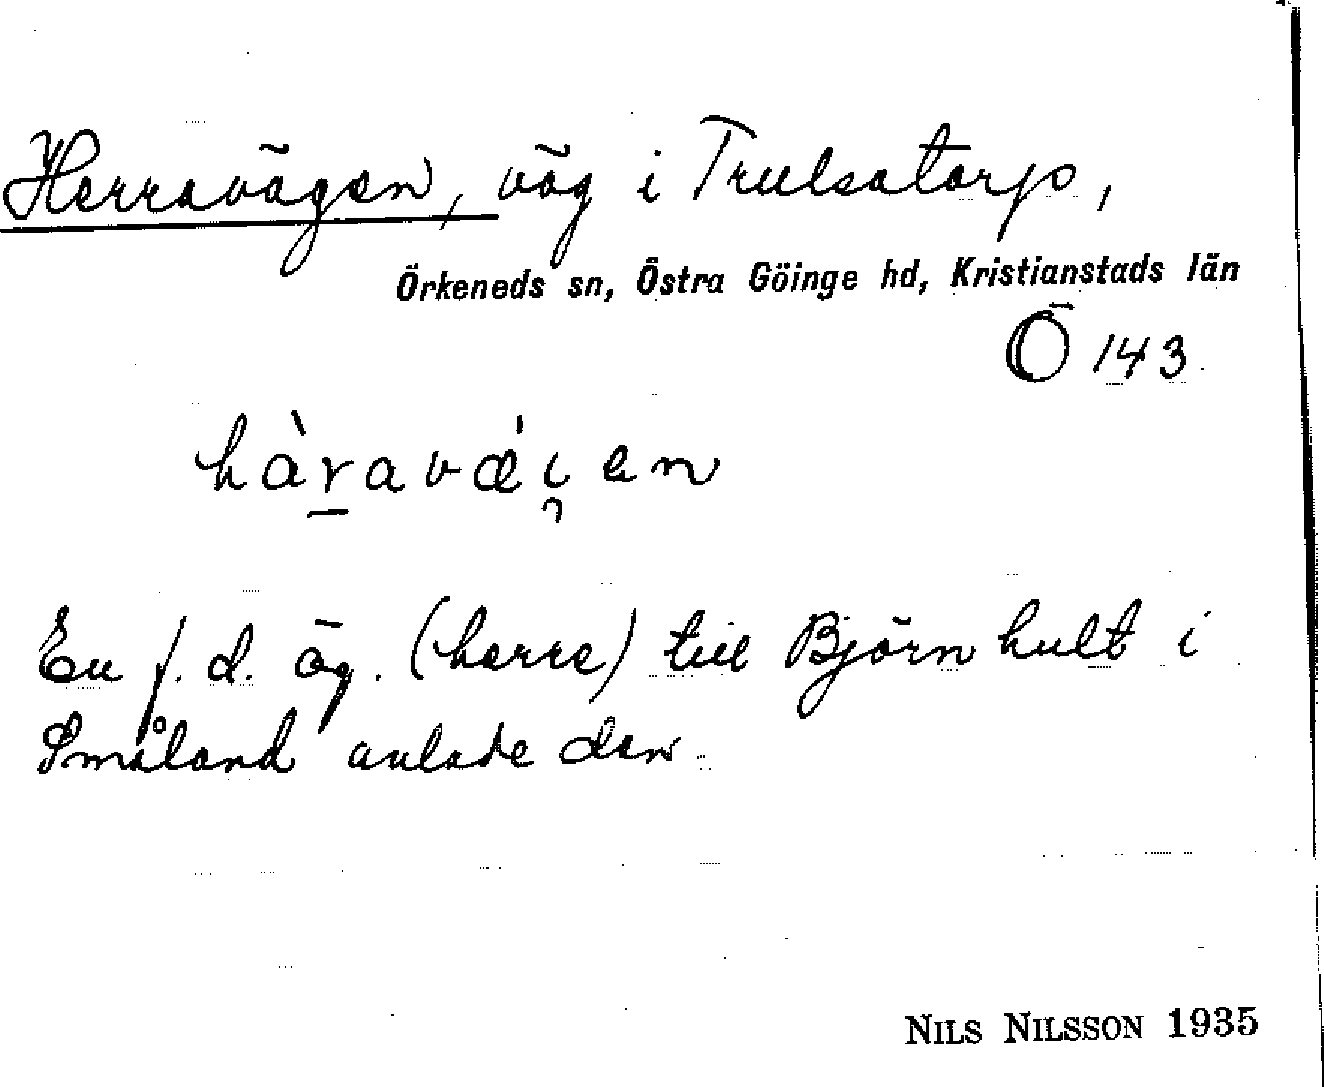 Herravägen, väg i Trulsatorp,
Örkeneds sn, Östra Göinge hd, Kristianstads län
Ö 143
hàravǽi̯en
En f. d. äg. (herre) till Björnhult i
Småland anlade den.
NILS NILSSON 1935